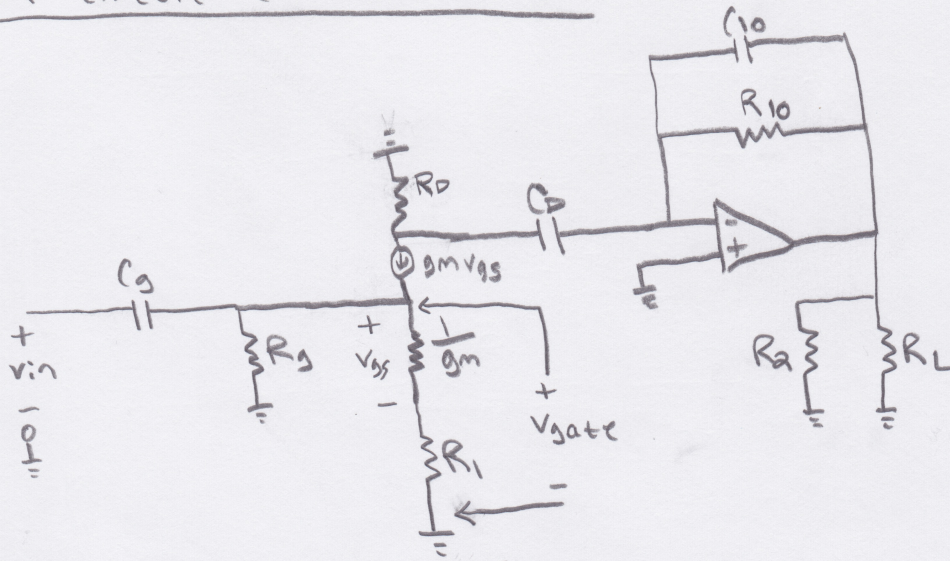 C10
R10
RD
CD
gmvgs
-
+
Cg
+
vin
-
Rg
+
vgs
-
1/gm
+
vgate
-
R1
R2
RL